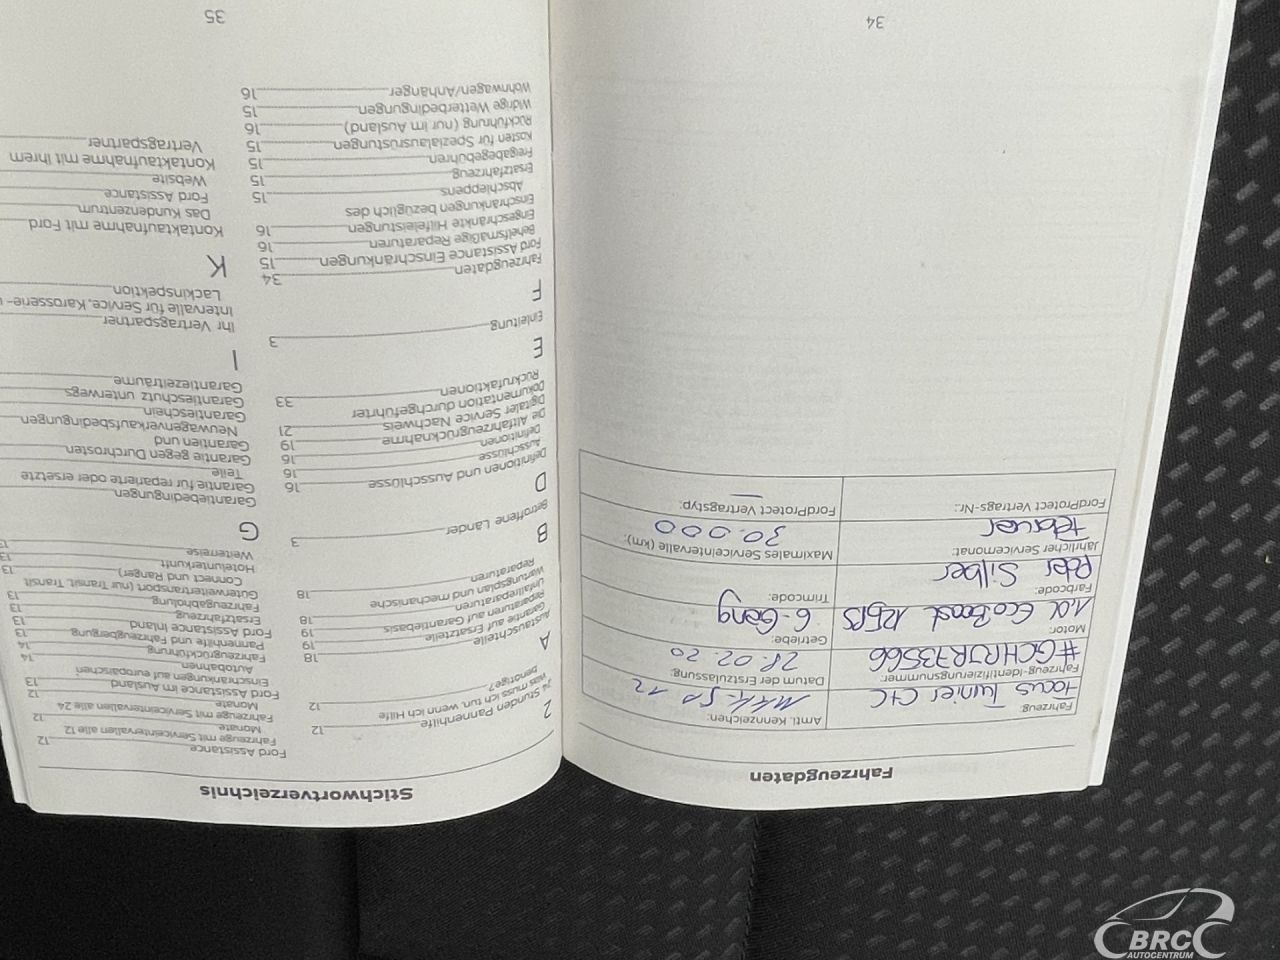 Fahrzeugdaten
Fahrzeug:
Focus Turnier C+C
Amtl. Kennzeichen:
Fahrzeug-Identifizierungsnummer:
#GCHRJR73566
Datum der Erstzulassung:
28.02.20
Motor:
1,0l EcoBoost 125PS
Getriebe:
6-Gang
Farbcode:
Polar Silber
Trimcode:
Jährlicher Servicemonat:
Februar
Maximales Serviceintervalle (km):
30.000
FordProtect Vertrags-Nr.:
FordProtect Vertragstyp:
—
34
Stichwortverzeichnis
2
24 Stunden Pannenhilfe
Was muss ich wenn tun ich Hilfe
benötige?.....12
A
Austauschteile.....18
Garantie auf Ersatzteile.....19
Reparaturen auf Garantiebasis.....19
Unfallreparaturen.....18
Wartungsplan und mechanische
Reparaturen.....18
B
Betroffene Länder.....3
D
Definitionen und Ausschlüsse.....16
Ausschlüsse.....16
Definitionen.....16
Die Altfahrzeugrücknahme.....19
Digitaler Service Nachweis.....21
Dokumentation durchgeführter
Rückrufaktionen.....33
E
Einleitung.....3
F
Fahrzeugdaten.....34
Ford Assistance Einschränkungen.....15
Behelfsmäßige Reparaturen.....16
Eingeschränkte Hilfeleistungen.....16
Einschränkungen bezüglich des
Abschleppens.....15
Ersatzfahrzeug.....15
Freigabegebühren.....15
Kosten für Spezialausrüstungen.....15
Rückführung (nur im Ausland).....16
Widrige Wetterbedingungen.....15
Wohnwagen/Anhänger.....16
Ford Assistance.....12
Fahrzeuge mit Serviceintervallen alle 12
Monate.....12
Fahrzeuge mit Serviceintervallen alle 24
Monate.....12
Ford Assistance im Ausland.....13
Einschränkungen auf europäischen
Autobahnen.....14
Fahrzeugrückführung.....14
Pannenhilfe und Fahrzeugbergung.....13
Ford Assistance Inland.....13
Ersatzfahrzeug.....13
Fahrzeugabholung.....13
Güterweitertransport (nur Transit, Transit
Connect und Ranger).....13
Hotelunterkunft.....13
Weiterreise.....13
G
Garantiebedingungen
Garantie für reparierte oder ersetzte
Teile
Garantie gegen Durchrosten
Garantien und
Neuwagenverkaufsbedingungen
Garantieschein
Garantieschutz unterwegs
Garantiezeiträume
I
Ihr Vertragspartner
Intervalle für Service, Karosserie-
Lackinspektion
K
Kontaktaufnahme mit Ford
Das Kundenzentrum
Ford Assistance
Website
Kontaktaufnahme mit Ihrem
Vertragspartner
35
BRC
AUTOCENTRUM